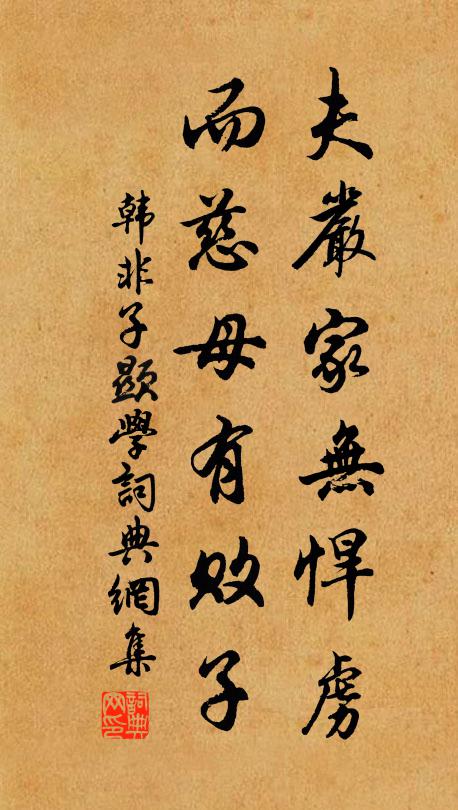 夫嚴家無悍虜
而慈母有敗子
韩非子顯學詞典網集
詞典網印